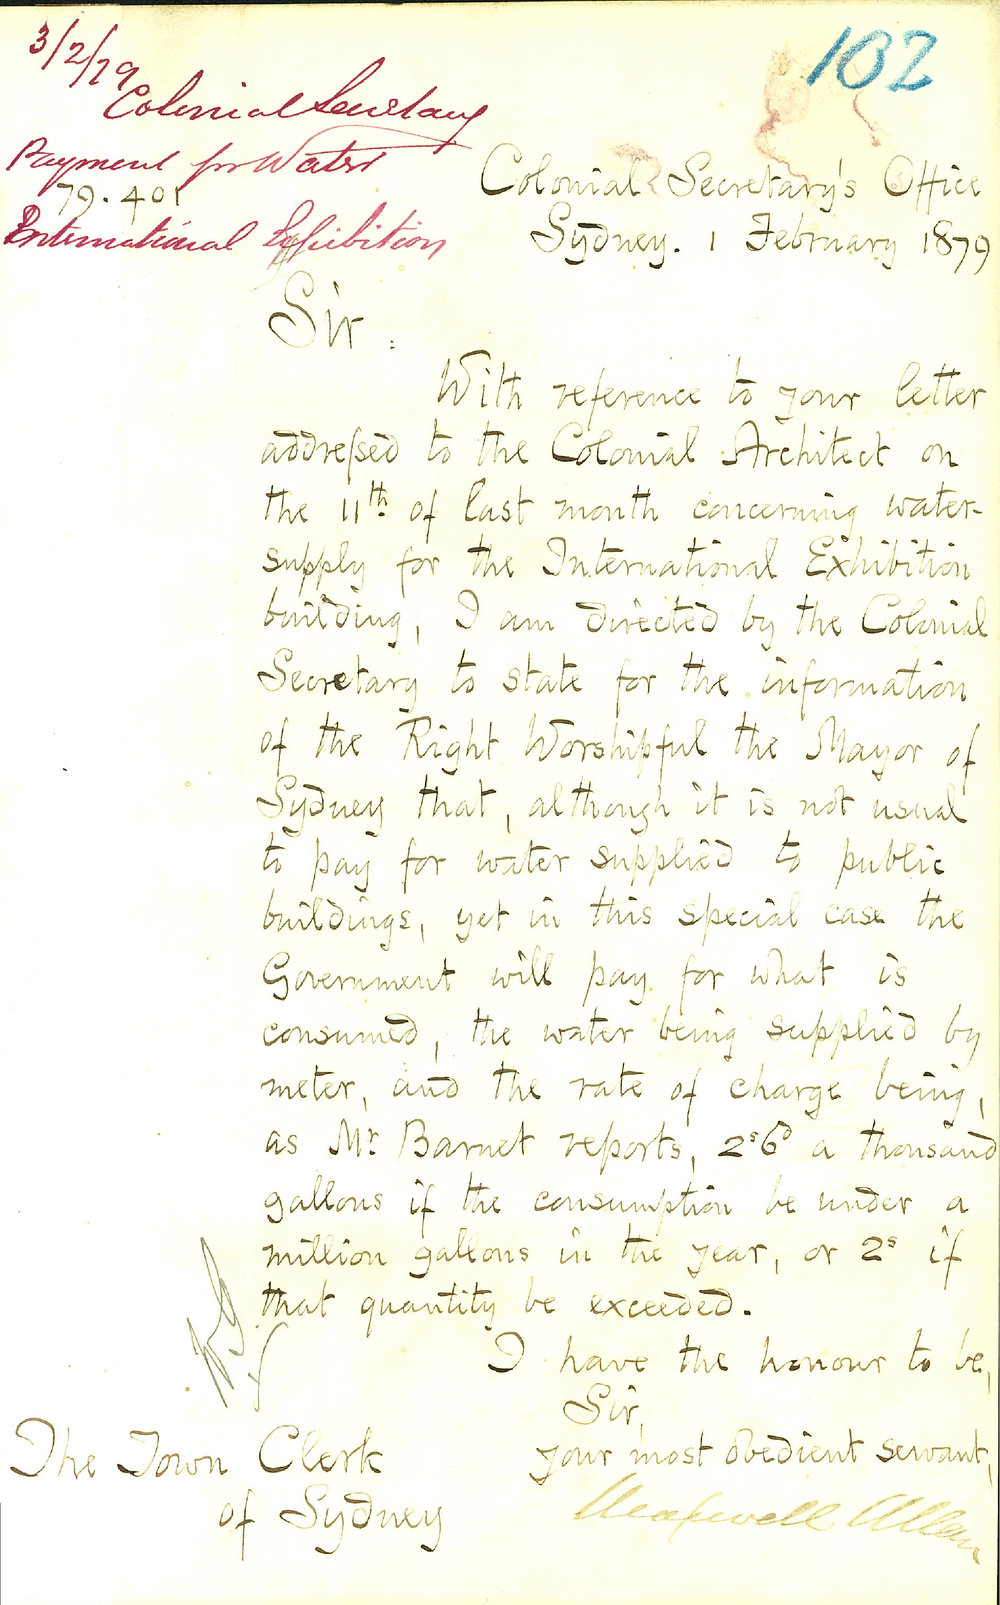 102
3/2/79
Colonial Secretary
Payment for Water
79.401
International Exhibition
Colonial Secretary's Office
Sydney. 1 February 1879
Sir:
With reference to your letter
addreſsed to the Colonial Architect on
the 11th of last month concerning water-
supply for the International Exhibition
building, I am directed by the Colonial
Secretary to state for the information
of the Right Worshipful the Mayor of
Sydney that, although it is not usual
to pay for water supplied to public
buildings, yet in this special case the
Government will pay for what is
consumed, the water being supplied by
meter, and the rate of charge being,
as Mr. Barnet reports, 2s6d a thousand
gallons if the consumption be under a
million gallons in the year, or 2s if
that quantity be exceeded.
I have the honour to be,
Sir,
your most obedient servant,
Maxwell Allan
The Town Clerk
of Sydney